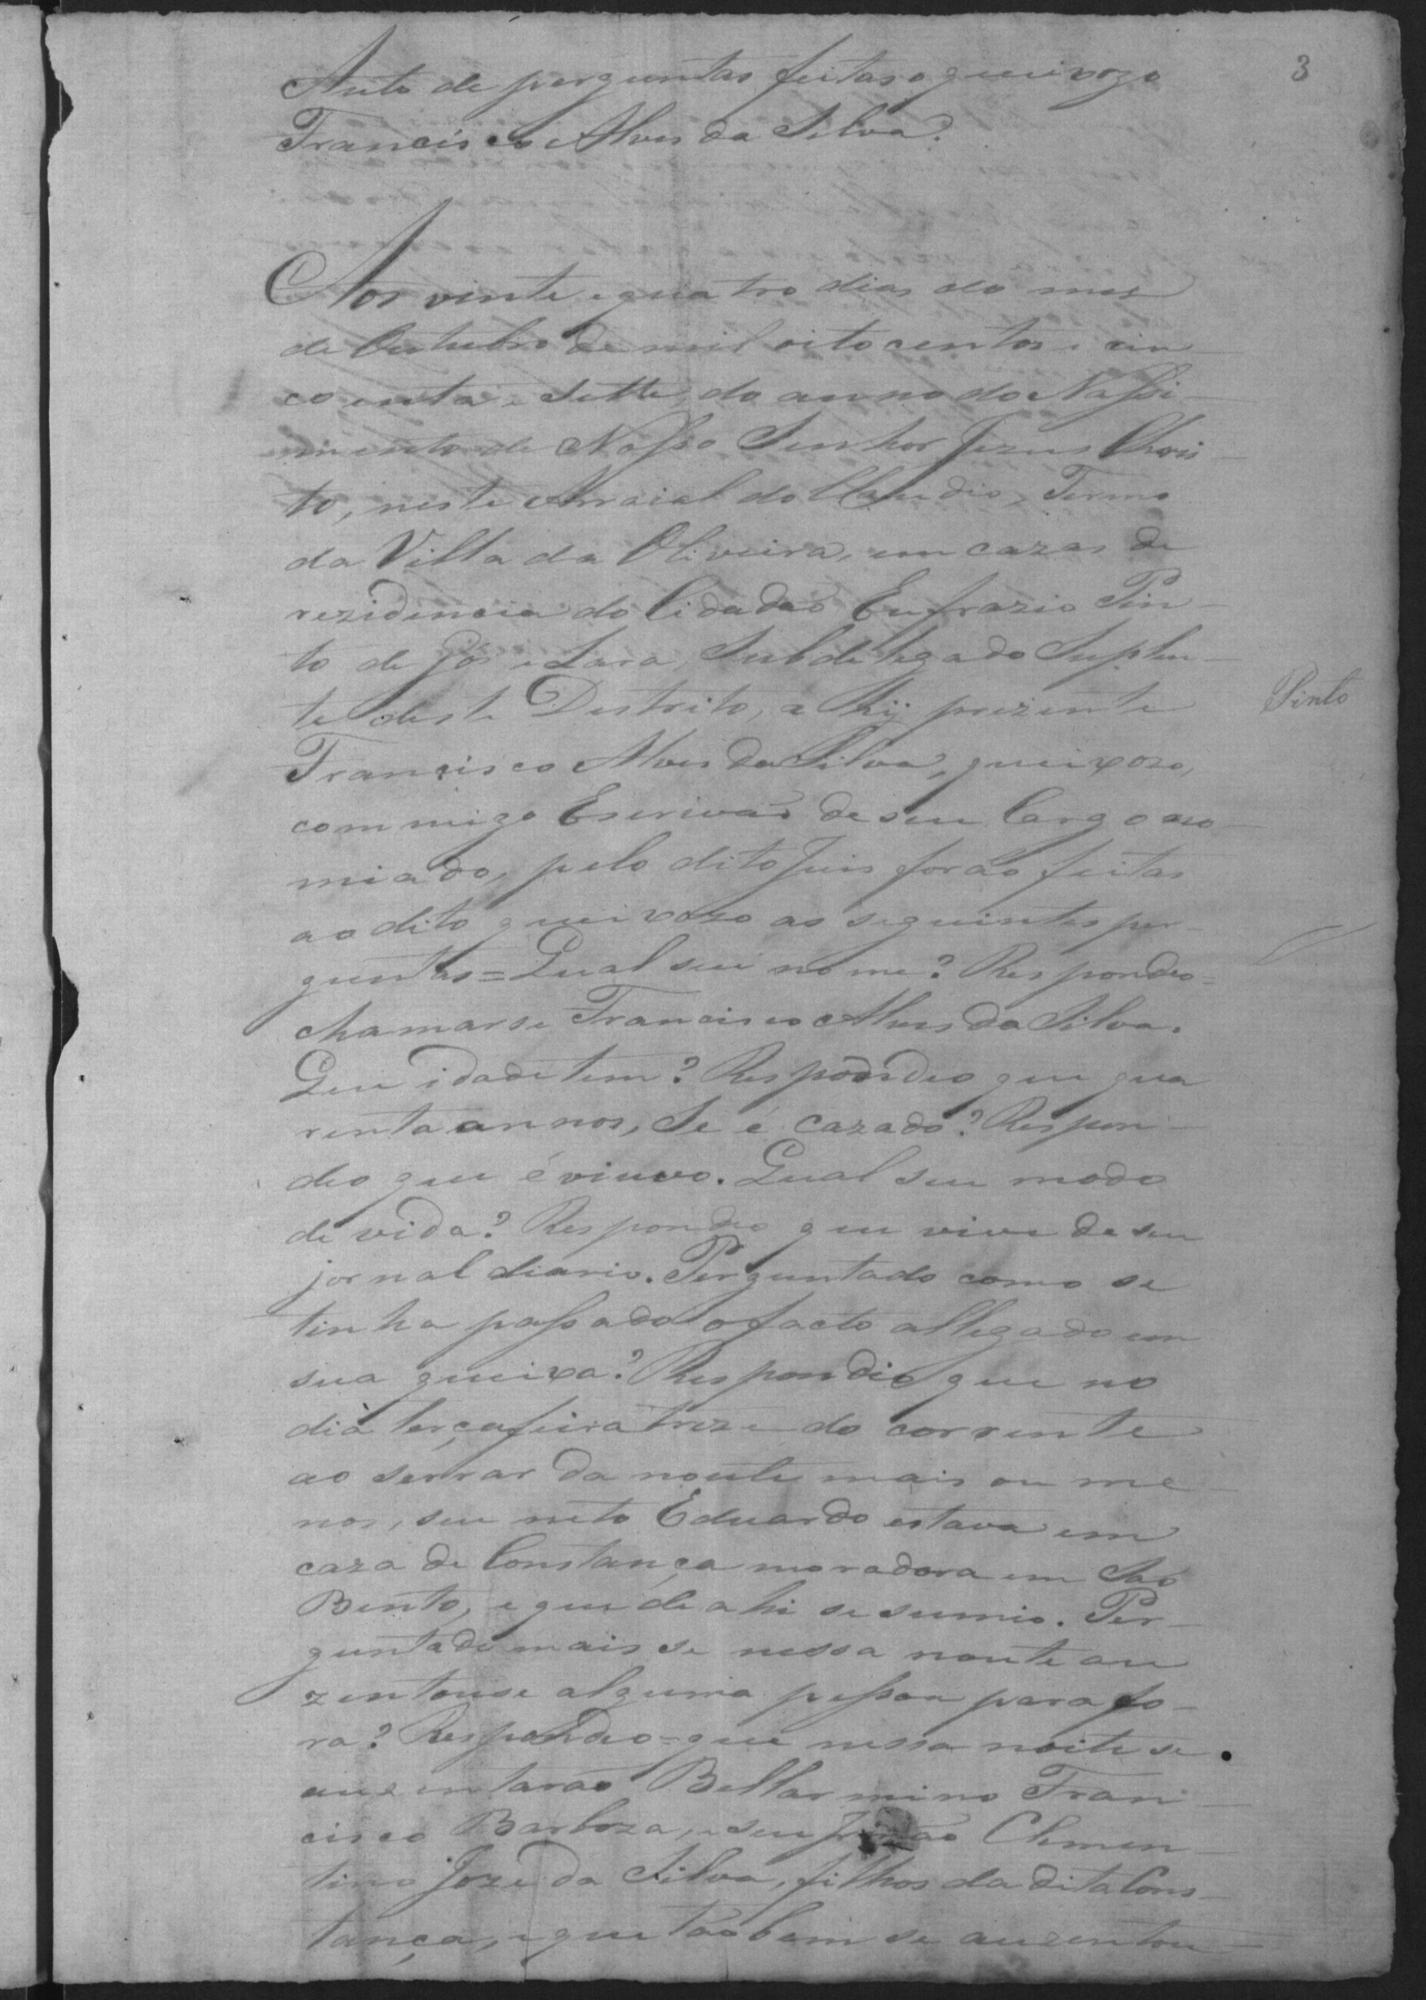 3
Auto de perguntas feitas o queixozo
Francisco Alves da Silva.
Aos vinte e quatro dias do mes
de Outubro de mil oitocentos e cin
coenta e sette, do anno do Nassi-
mento de Nosso Senhor Jezus Chris-
to, neste Arraial do Claudio, Termo
da Villa da Oliveira, em cazas de
rezidencia do Cidadão Eufrazio Pin-
to de Góes e Lara, Subdelegado Suplen-
te deste Destrito, ahy prezente
Pinto
Francisco Alves da Silva, queixozo,
commigo Escrivão de seu Cargo no-
miado, pelo dito Juis forão feitas
ao dito queixozo as seguintes per-
guntas = Qual seu nome? Respondeo =
chamarse Francisco Alves da Silva.
Que idade tem? Respondeo que qua
renta annos, Se é cazado? Respon-
deo que é viuvo. Qual seu modo
de vida? Respondeo que vive de seu
jornal diario. Perguntado como se
tinha passado o facto allegado em
sua queixa? Respondeo que no
dia terça feira treze do corrente
ao serrar da noute mais ou me-
nos, seu neto Eduardo estava em
caza de Constança moradora em São
Bento, e que de ahi se sumio. Per-
guntado mais se nessa noute au
zentouse alguma pessoa para fo-
ra? Respondeo = que nessa noite se
auzentarão Bellarmino Fran-
cisco Barboza, e seu Irmão Clemen-
tino Joze da Silva, filhos da dita Cons-
tança, e que tãobem se auzentou-